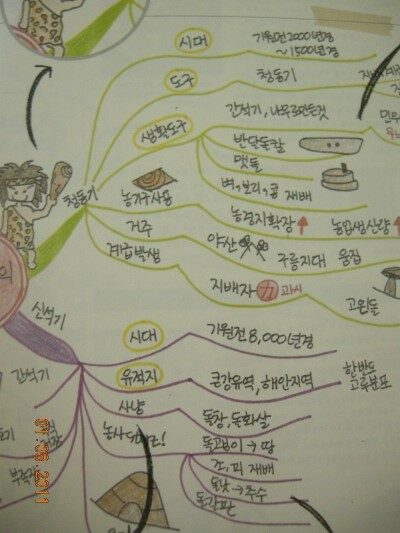 시대
기원전 2000년경
~1500년경
도구
청동기
생활도구
간석기, 나무로만든것
반달돌칼
맷돌
벼, 보리, 콩 재배
청동기
농기구사용
농경지확장↑
농업생산량↑
거주
야산
구릉지대 움집
계급발생
지배자
力
과시
고인돌
신석기
시대
기원전 8,000년경
유적지
큰강유역, 해안지역
한반도
고루분포
간석기
사냥
돌창, 돌화살
농사
돌괭이→땅
조, 피 재배
돌낫→추수
돌갈판